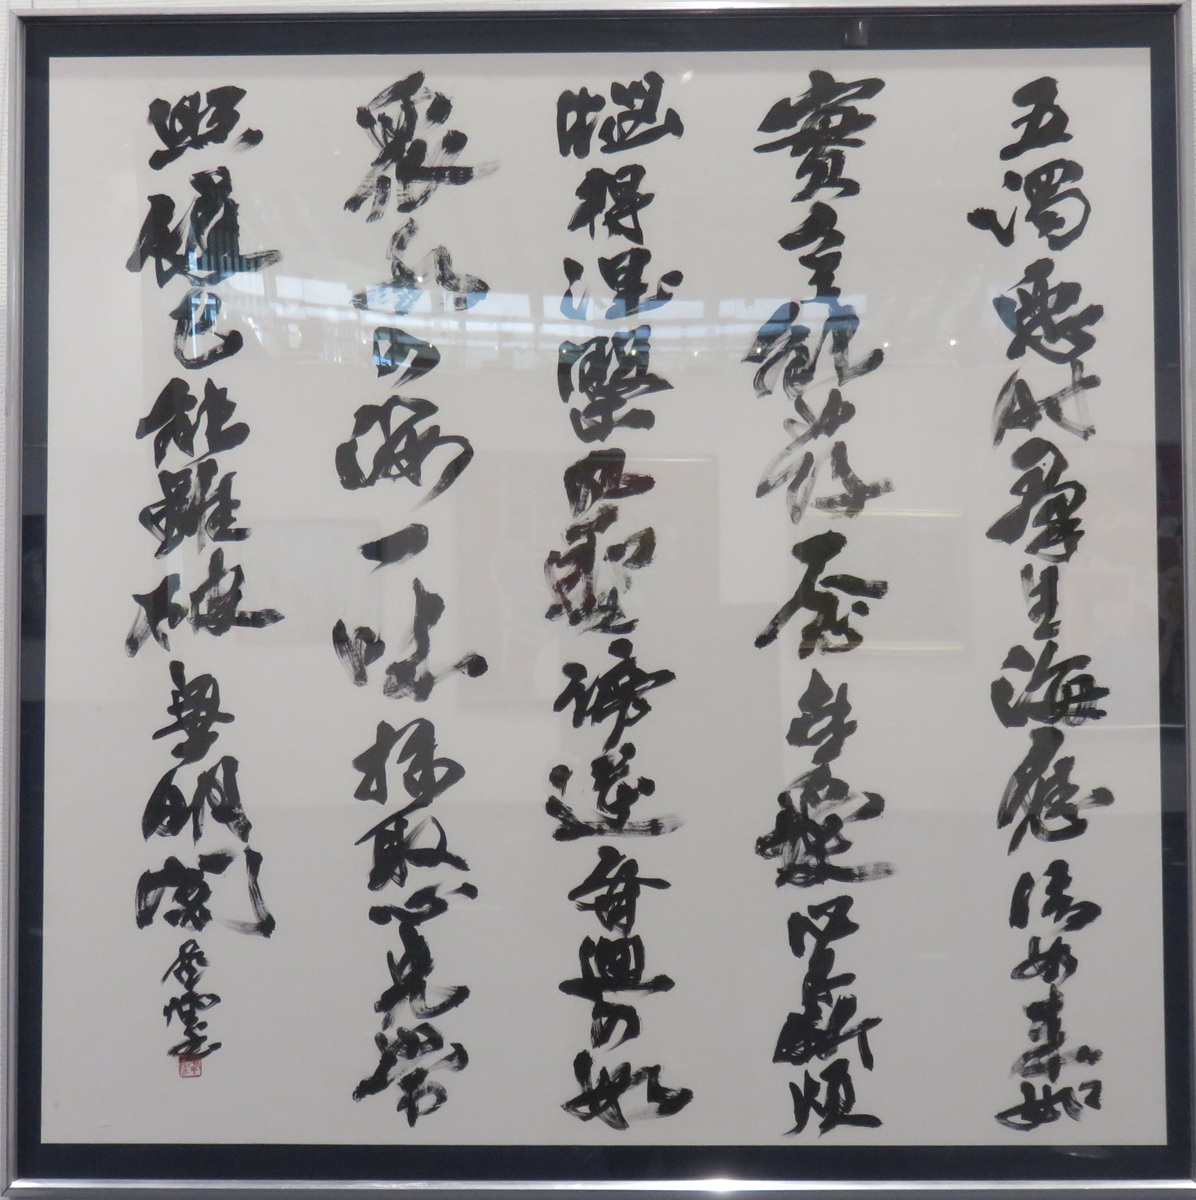 五濁惡時群生海應信如來如
實言能發一念喜愛心不斷煩
惱得涅槃凡聖謗逆齊廻入如
衆水入海一味攝取心光常
照護已能雖破無明闇